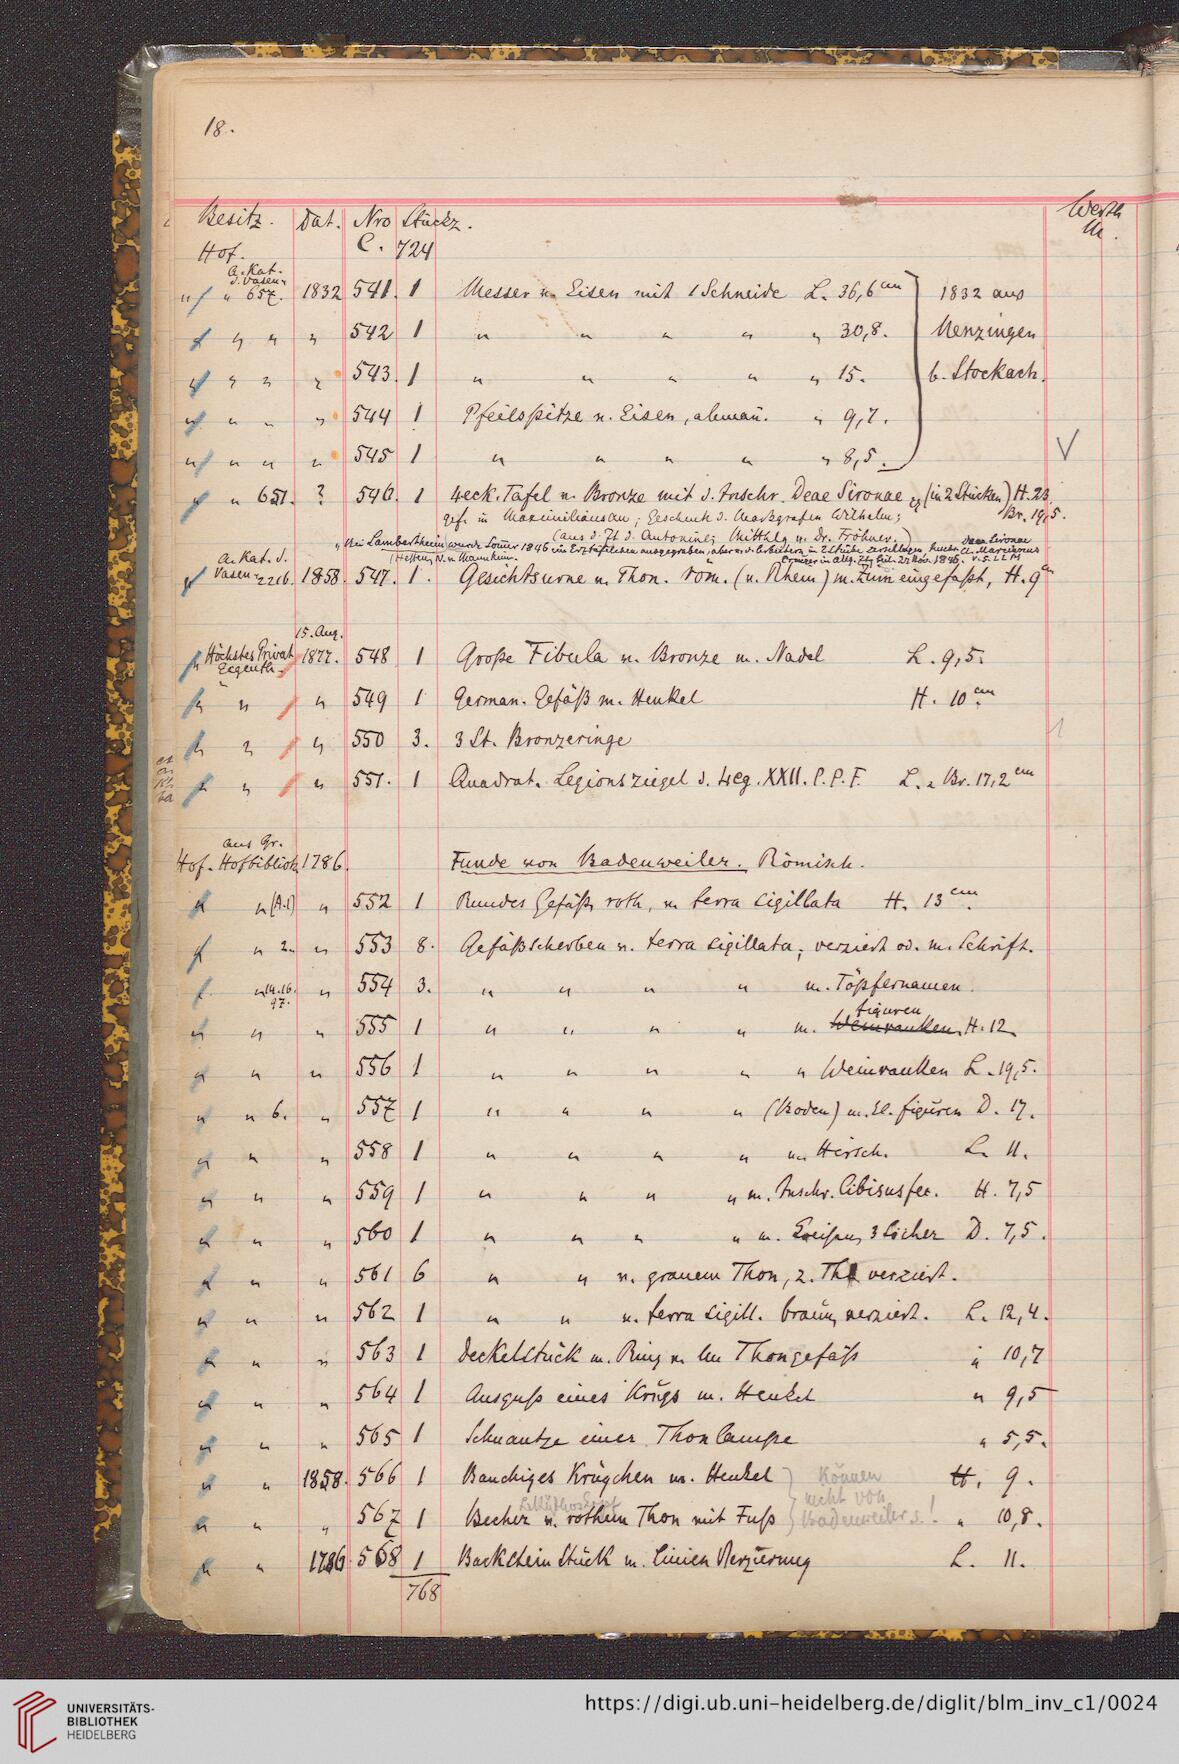 18.
Besitz. Dat. Nro Stückz. Werth
Hof. C. 724 M.
a. Kat.
d. Vasen-
" " 657. 1832 541. 1 Messer v. Eisen mit 1 Schneide L. 36,6 cm 1832 aus
" " " " 542 1 " " " " " 30,8. Menzingen
" " " " 543. 1 " " " " " 15. b. Stockach.
" " " " 544 1 Pfeilspitze v. Eisen, aleman̄. " 9,7.
" " " " 545 1 " " " " " 8,5. V
" " 651. ? 546. 1 4eck. Tafel v. Bronze mit d. Inschr. Deae Sironae etz (in 2 Stücken) H. 23
gef. in Maximiliansau; Geschenk d. Markgrafen Wilhelm; Br. 19,5.
(aus d. Zt d. Antonine; Mitthlg v. Dr. Fröhner.)
"bei Lambertheim wurde Som̄er 1846 ein Erztäfelchen ausgegraben, aber v. d. Arbeitern in 2 Stücke zerschlagen, Deae Sironae
a. Kat. d. (Hessen, N. v. Mannheim. Creuzer in allg. Ztg Beil. 27 Nov. 1846. V. S. L L M
Vasen- 226. 1858. 547. 1. Gesichtsurne v. Thon. röm. (v. Rhein) m. Zinn eingefasst, H. 9 cm
15. Aug.
" Höchstes Privat 1877. 548 1 Große Fibula v. Bronze m. Nadel L. 9,5.
Eigenth.
" " " 549 1 German. Gefäß m. Henkel H. 10 cm.
" " " 550 3. 3 St. Bronzeringe
" " " 551. 1 Quadrat. Legionsziegel d. Leg. XXII. P. P. F. L. u. Br. 17,2 cm
aus Gr.
Hof. Hofbiblioth. 1786. Funde von Badenweiler. Römisch.
" " (A.1) " 552 1 Rundes Gefäß, roth, v. terra sigillata H. 13 cm.
" " 2. " 553 8. Gefäßscherben v. terra sigillata, verziert od. m. Schrift.
" " 14.16. " 554 3. " " " " m. Töpfernamen.
97. figuren
" " " 555 1 " " " " m. Weinranken. H. 12.
" " " 556 1 " " " " " Weinranken L. 19,5.
" " 6. " 557 1 " " " " (Boden) m. kl. figuren D. 17.
" " " 558 1 " " " " m. Hirsch. L. 11.
" " " 559 1 " " " " m. Inschr. Cibisus fec. H. 7,5
" " " 560 1 " " " " m. 3 Löcher D. 7,5.
" " " 561 6 " " v. grauem Thon, z. Th. verziert.
" " " 562 1 " " v. terra sigill. braun, verziert. L. 12,4.
" " " 563 1 Deckelstück m. Ring v. Thongefäss " 10,7
" " " 564 1 Ausguß eines Krugs m. Henkel " 9,5
" " " 565 1 Schnautze einer Thonlampe " 5,5.
" " 1858. 566 1 Bauchiges Krügchen m. Henkel können H. 9.
nicht von
" " " 567 1 Becher v. rothem Thon mit Fuß Badenweiler s.! " 10,8.
" " 1786. 568 1 Backstein Stück m. linien Verzierung L. 11.
768
UNIVERSITÄTS-
BIBLIOTHEK
HEIDELBERG
https://digi.ub.uni-heidelberg.de/diglit/blm_inv_c1/0024